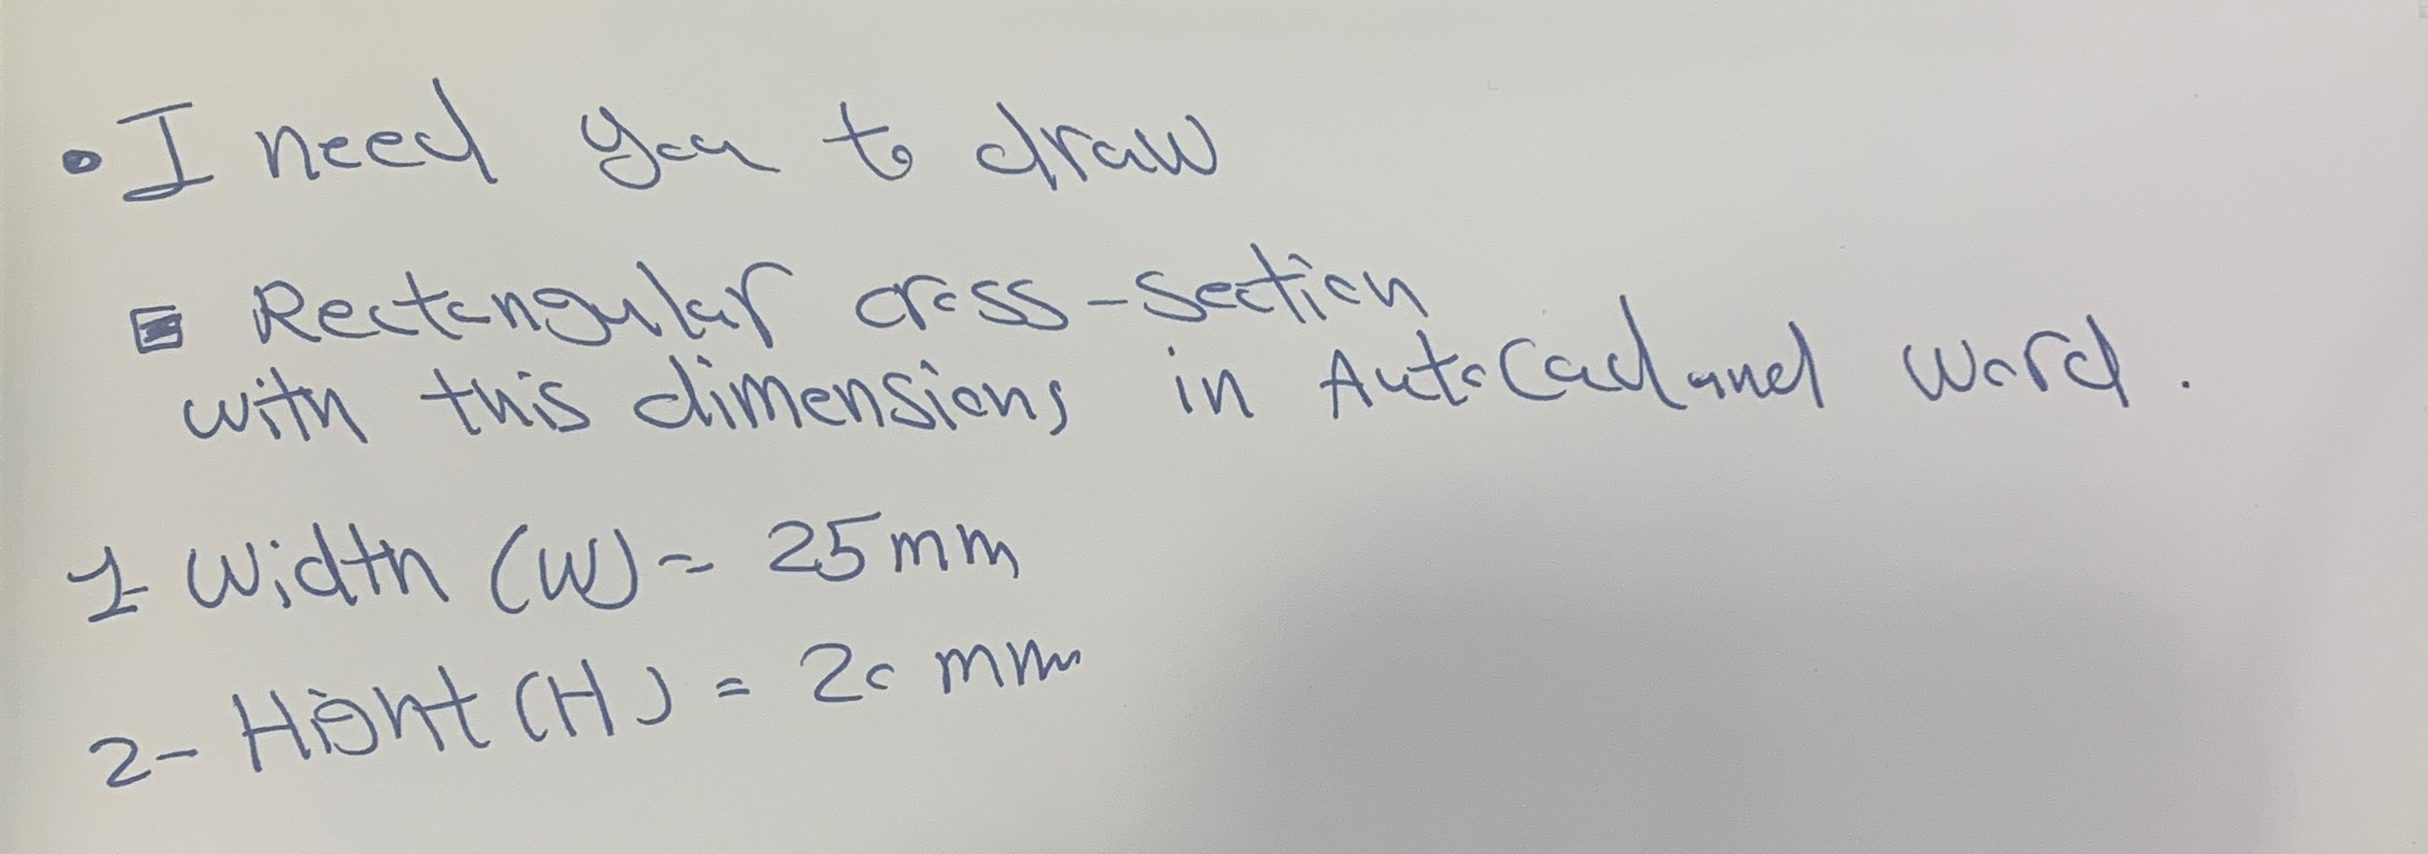 • I need you to draw
Rectangular cross-section
with this dimensions in AutoCad and word.
1- Width (W) = 25 mm
2- Hight (H) = 20 mm